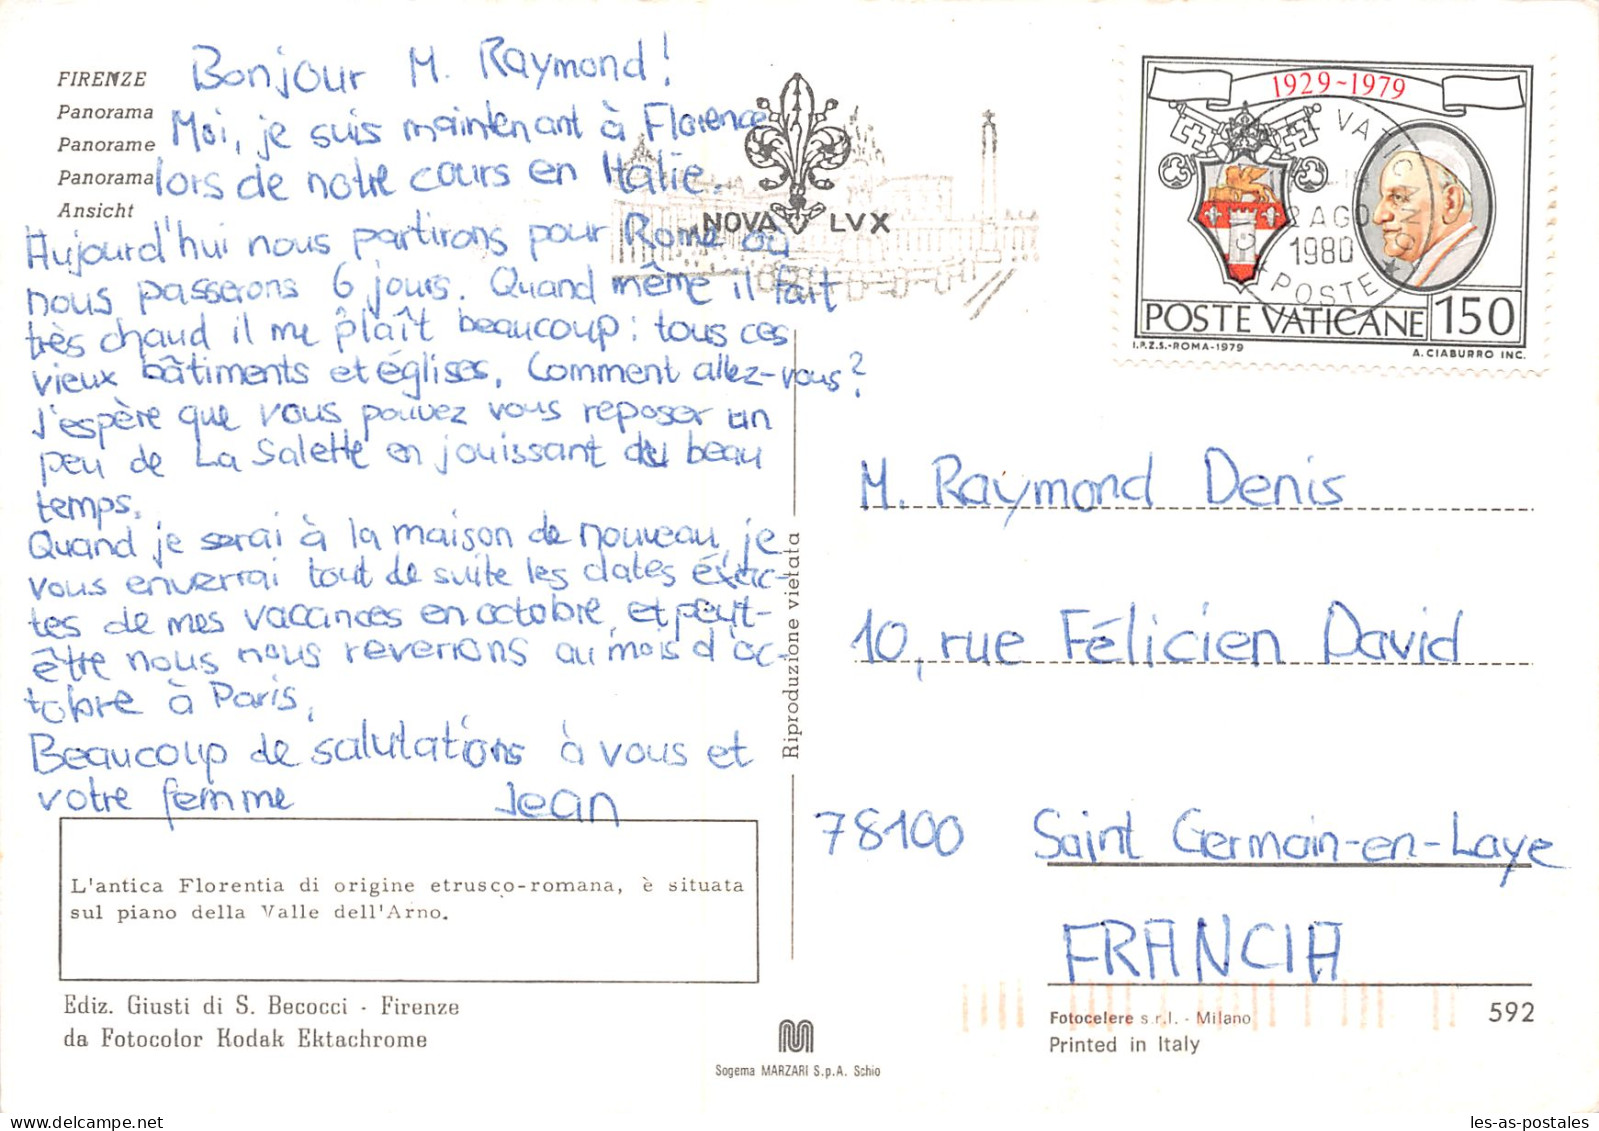 FIRENZE
Panorama
Panorame
Panorama
Ansicht
Bonjour M. Raymond!
Moi, je suis maintenant à Florence
lors de notre cours en Italie.
Aujourd'hui nous partirons pour Rome où
nous passerons 6 jours. Quand même il fait
très chaud il me plaît beaucoup: tous ces
vieux bâtiments et églises. Comment allez-vous?
J'espère que vous pouvez vous reposer un
peu de La Salette en jouissant du beau
temps.
Quand je serai à la maison de nouveau, je
vous enverrai tout de suite les dates éxac-
tes de mes vacances en octobre, et peut-
être nous nous reverrons au mois d'oc-
tobre à Paris.
Beaucoup de salutations à vous et
votre femme Jean
L'antica Florentia di origine etrusco-romana, è situata
sul piano della Valle dell'Arno.
Ediz. Giusti di S. Becocci - Firenze
da Fotocolor Kodak Ektachrome
NOVA LVX
Riproduzione vietata
Sogema MARZARI S.p.A. Schio
1929-1979
VATICANO
2 AGO
1980
POSTE
POSTE VATICANE 150
I.P.Z.S.-ROMA-1979
A. CIABURRO INC.
M. Raymond Denis
10, rue Félicien David
78100 Saint Germain-en-Laye
FRANCIA
Fotocelere s.r.l. - Milano
Printed in Italy
592
les-as-postales